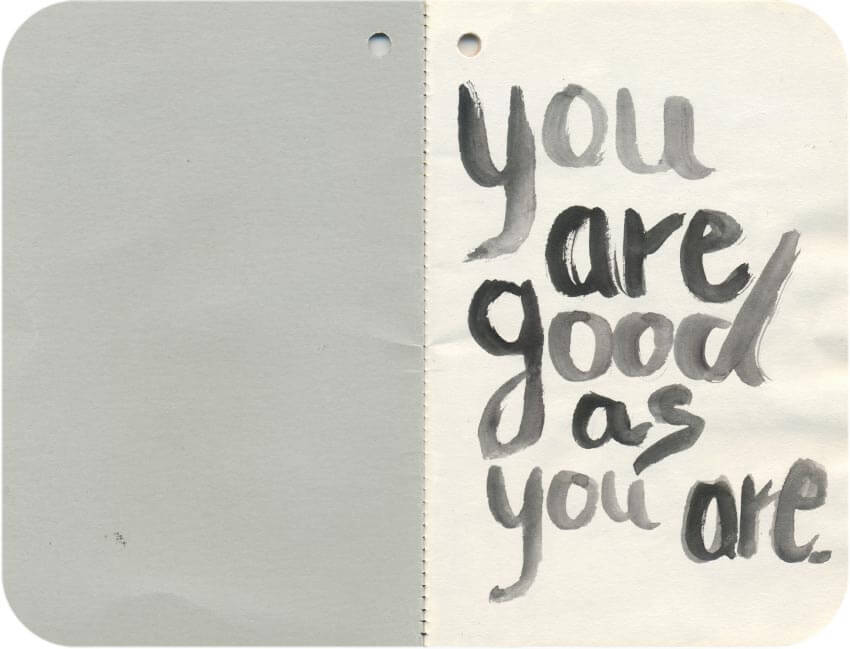 you
are
good
as
you are.